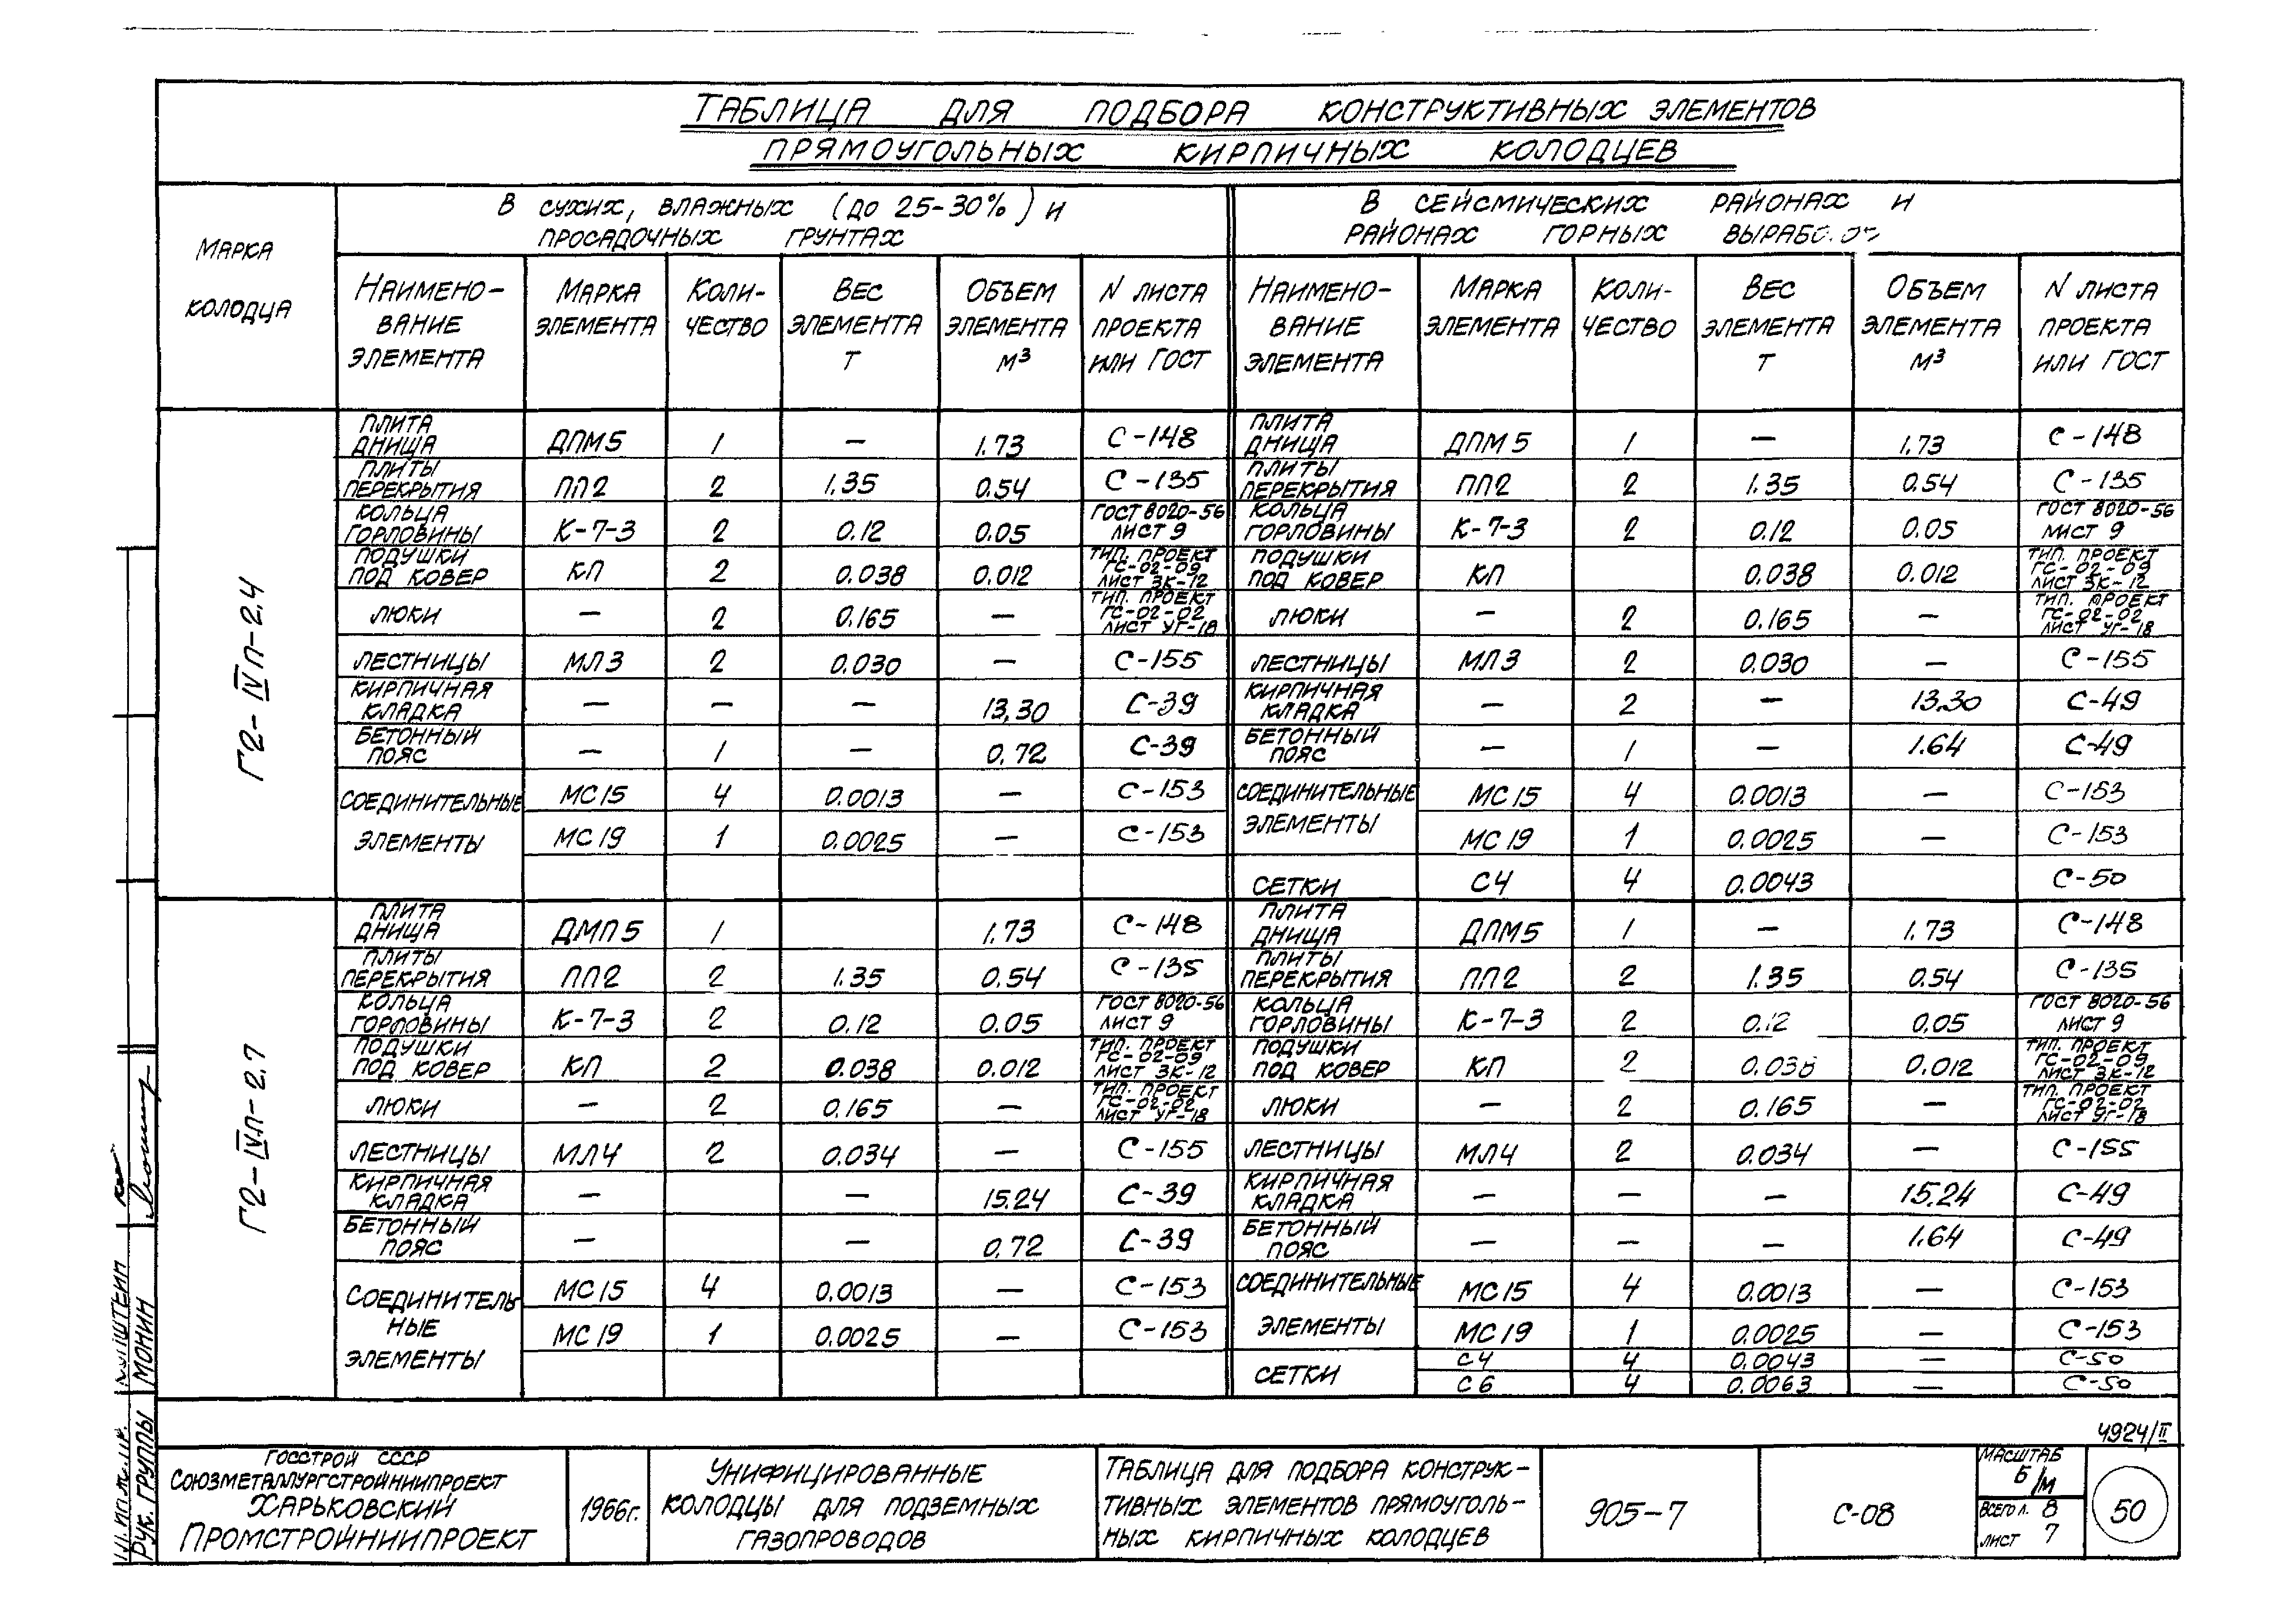 ТАБЛИЦА ДЛЯ ПОДБОРА КОНСТРУКТИВНЫХ ЭЛЕМЕНТОВ
ПРЯМОУГОЛЬНЫХ КИРПИЧНЫХ КОЛОДЦЕВ
МАРКА КОЛОДЦА
В СУХИХ, ВЛАЖНЫХ (ДО 25-30%) И
ПРОСАДОЧНЫХ ГРУНТАХ
В СЕЙСМИЧЕСКИХ РАЙОНАХ И
РАЙОНАХ ГОРНЫХ
НАИМЕНО- МАРКА КОЛИ- ВЕС ОБЪЕМ N ЛИСТА НАИМЕНО- МАРКА КОЛИ- ВЕС ОБЪЕМ N ЛИСТА
ВАНИЕ ЭЛЕМЕНТА ЧЕСТВО ЭЛЕМЕНТА ЭЛЕМЕНТА ПРОЕКТА ВАНИЕ ЭЛЕМЕНТА ЧЕСТВО ЭЛЕМЕНТА ЭЛЕМЕНТА ПРОЕКТА
ЭЛЕМЕНТА Т М³ ИЛИ ГОСТ ЭЛЕМЕНТА Т М³ ИЛИ ГОСТ
Г2-IVП-2,4
ПЛИТА ДНИЩА ДПМ5 1 — 1.73 С-148 ПЛИТА ДНИЩА ДПМ5 1 — 1.73 С-148
ПЛИТЫ ПЕРЕКРЫТИЯ ПП2 2 1.35 0.54 С-135 ПЛИТЫ ПЕРЕКРЫТИЯ ПП2 2 1.35 0.54 С-135
КОЛЬЦА ГОРЛОВИНЫ К-7-3 2 0.12 0.05 ГОСТ 8020-56 ЛИСТ 9 КОЛЬЦА ГОРЛОВИНЫ К-7-3 2 0.12 0.05 ГОСТ 8020-56 ЛИСТ 9
ПОДУШКИ ПОД КОВЕР КП 2 0.038 0.012 ТИП. ПРОЕКТ ГС-02-09 ЛИСТ ЗК-12 ПОДУШКИ ПОД КОВЕР КП 0.038 0.012 ТИП. ПРОЕКТ ГС-02-09 ЛИСТ ЗК-12
ЛЮКИ — 2 0.165 — ТИП. ПРОЕКТ ГС-02-02 ЛИСТ УГ-18 ЛЮКИ — 2 0.165 — ТИП. ПРОЕКТ ГС-02-02 ЛИСТ УГ-18
ЛЕСТНИЦЫ МЛ3 2 0.030 — С-155 ЛЕСТНИЦЫ МЛ3 2 0.030 — С-155
КИРПИЧНАЯ КЛАДКА — — — 13,30 С-39 КИРПИЧНАЯ КЛАДКА — 2 — 13.30 С-49
БЕТОННЫЙ ПОЯС — 1 — 0,72 С-39 БЕТОННЫЙ ПОЯС — 1 — 1.64 С-49
СОЕДИНИТЕЛЬНЫЕ МС15 4 0.0013 — С-153 СОЕДИНИТЕЛЬНЫЕ МС15 4 0.0013 — С-153
ЭЛЕМЕНТЫ МС19 1 0.0025 — С-153 ЭЛЕМЕНТЫ МС19 1 0.0025 — С-153
СЕТКИ С4 4 0.0043 С-50
Г2-IVП-2,7
ПЛИТА ДНИЩА ДМП5 1 1.73 С-148 ПЛИТА ДНИЩА ДПМ5 1 — 1.73 С-148
ПЛИТЫ ПЕРЕКРЫТИЯ ПП2 2 1.35 0.54 С-135 ПЛИТЫ ПЕРЕКРЫТИЯ ПП2 2 1.35 0.54 С-135
КОЛЬЦА ГОРЛОВИНЫ К-7-3 2 0.12 0.05 ГОСТ 8020-56 ЛИСТ 9 КОЛЬЦА ГОРЛОВИНЫ К-7-3 2 0.12 0.05 ГОСТ 8020-56 ЛИСТ 9
ПОДУШКИ ПОД КОВЕР КП 2 0.038 0.012 ТИП. ПРОЕКТ ГС-02-09 ЛИСТ ЗК-12 ПОДУШКИ ПОД КОВЕР КП 2 0.038 0.012 ТИП. ПРОЕКТ ГС-02-09 ЛИСТ ЗК-12
ЛЮКИ — 2 0.165 — ТИП. ПРОЕКТ ГС-02-02 ЛИСТ УГ-18 ЛЮКИ — 2 0.165 — ТИП. ПРОЕКТ ГС-02-02 ЛИСТ УГ-18
ЛЕСТНИЦЫ МЛ4 2 0.034 — С-155 ЛЕСТНИЦЫ МЛ4 2 0.034 — С-155
КИРПИЧНАЯ КЛАДКА — — 15.24 С-39 КИРПИЧНАЯ КЛАДКА — — — 15.24 С-49
БЕТОННЫЙ ПОЯС — — 0,72 С-39 БЕТОННЫЙ ПОЯС — — — 1.64 С-49
СОЕДИНИТЕЛЬ МС15 4 0.0013 — С-153 СОЕДИНИТЕЛЬНЫЕ МС15 4 0.0013 — С-153
НЫЕ ЭЛЕМЕНТЫ МС19 1 0.0025 — С-153 ЭЛЕМЕНТЫ МС19 1 0.0025 — С-153
СЕТКИ С4 4 0.0043 — С-50
С6 4 0.0063 — С-50
4924/II
ГОССТРОЙ СССР
СОЮЗМЕТАЛЛУРГСТРОЙНИИПРОЕКТ
ХАРЬКОВСКИЙ
ПРОМСТРОЙНИИПРОЕКТ
1966г.
УНИФИЦИРОВАННЫЕ
КОЛОДЦЫ ДЛЯ ПОДЗЕМНЫХ
ГАЗОПРОВОДОВ
ТАБЛИЦА ДЛЯ ПОДБОРА КОНСТРУК-
ТИВНЫХ ЭЛЕМЕНТОВ ПРЯМОУГОЛЬ-
НЫХ КИРПИЧНЫХ КОЛОДЦЕВ
905-7
С-08
МАСШТАБ
Б/М
ВСЕГО Л. 8
ЛИСТ 7
50
РУК. ГРУППЫ МОНИН